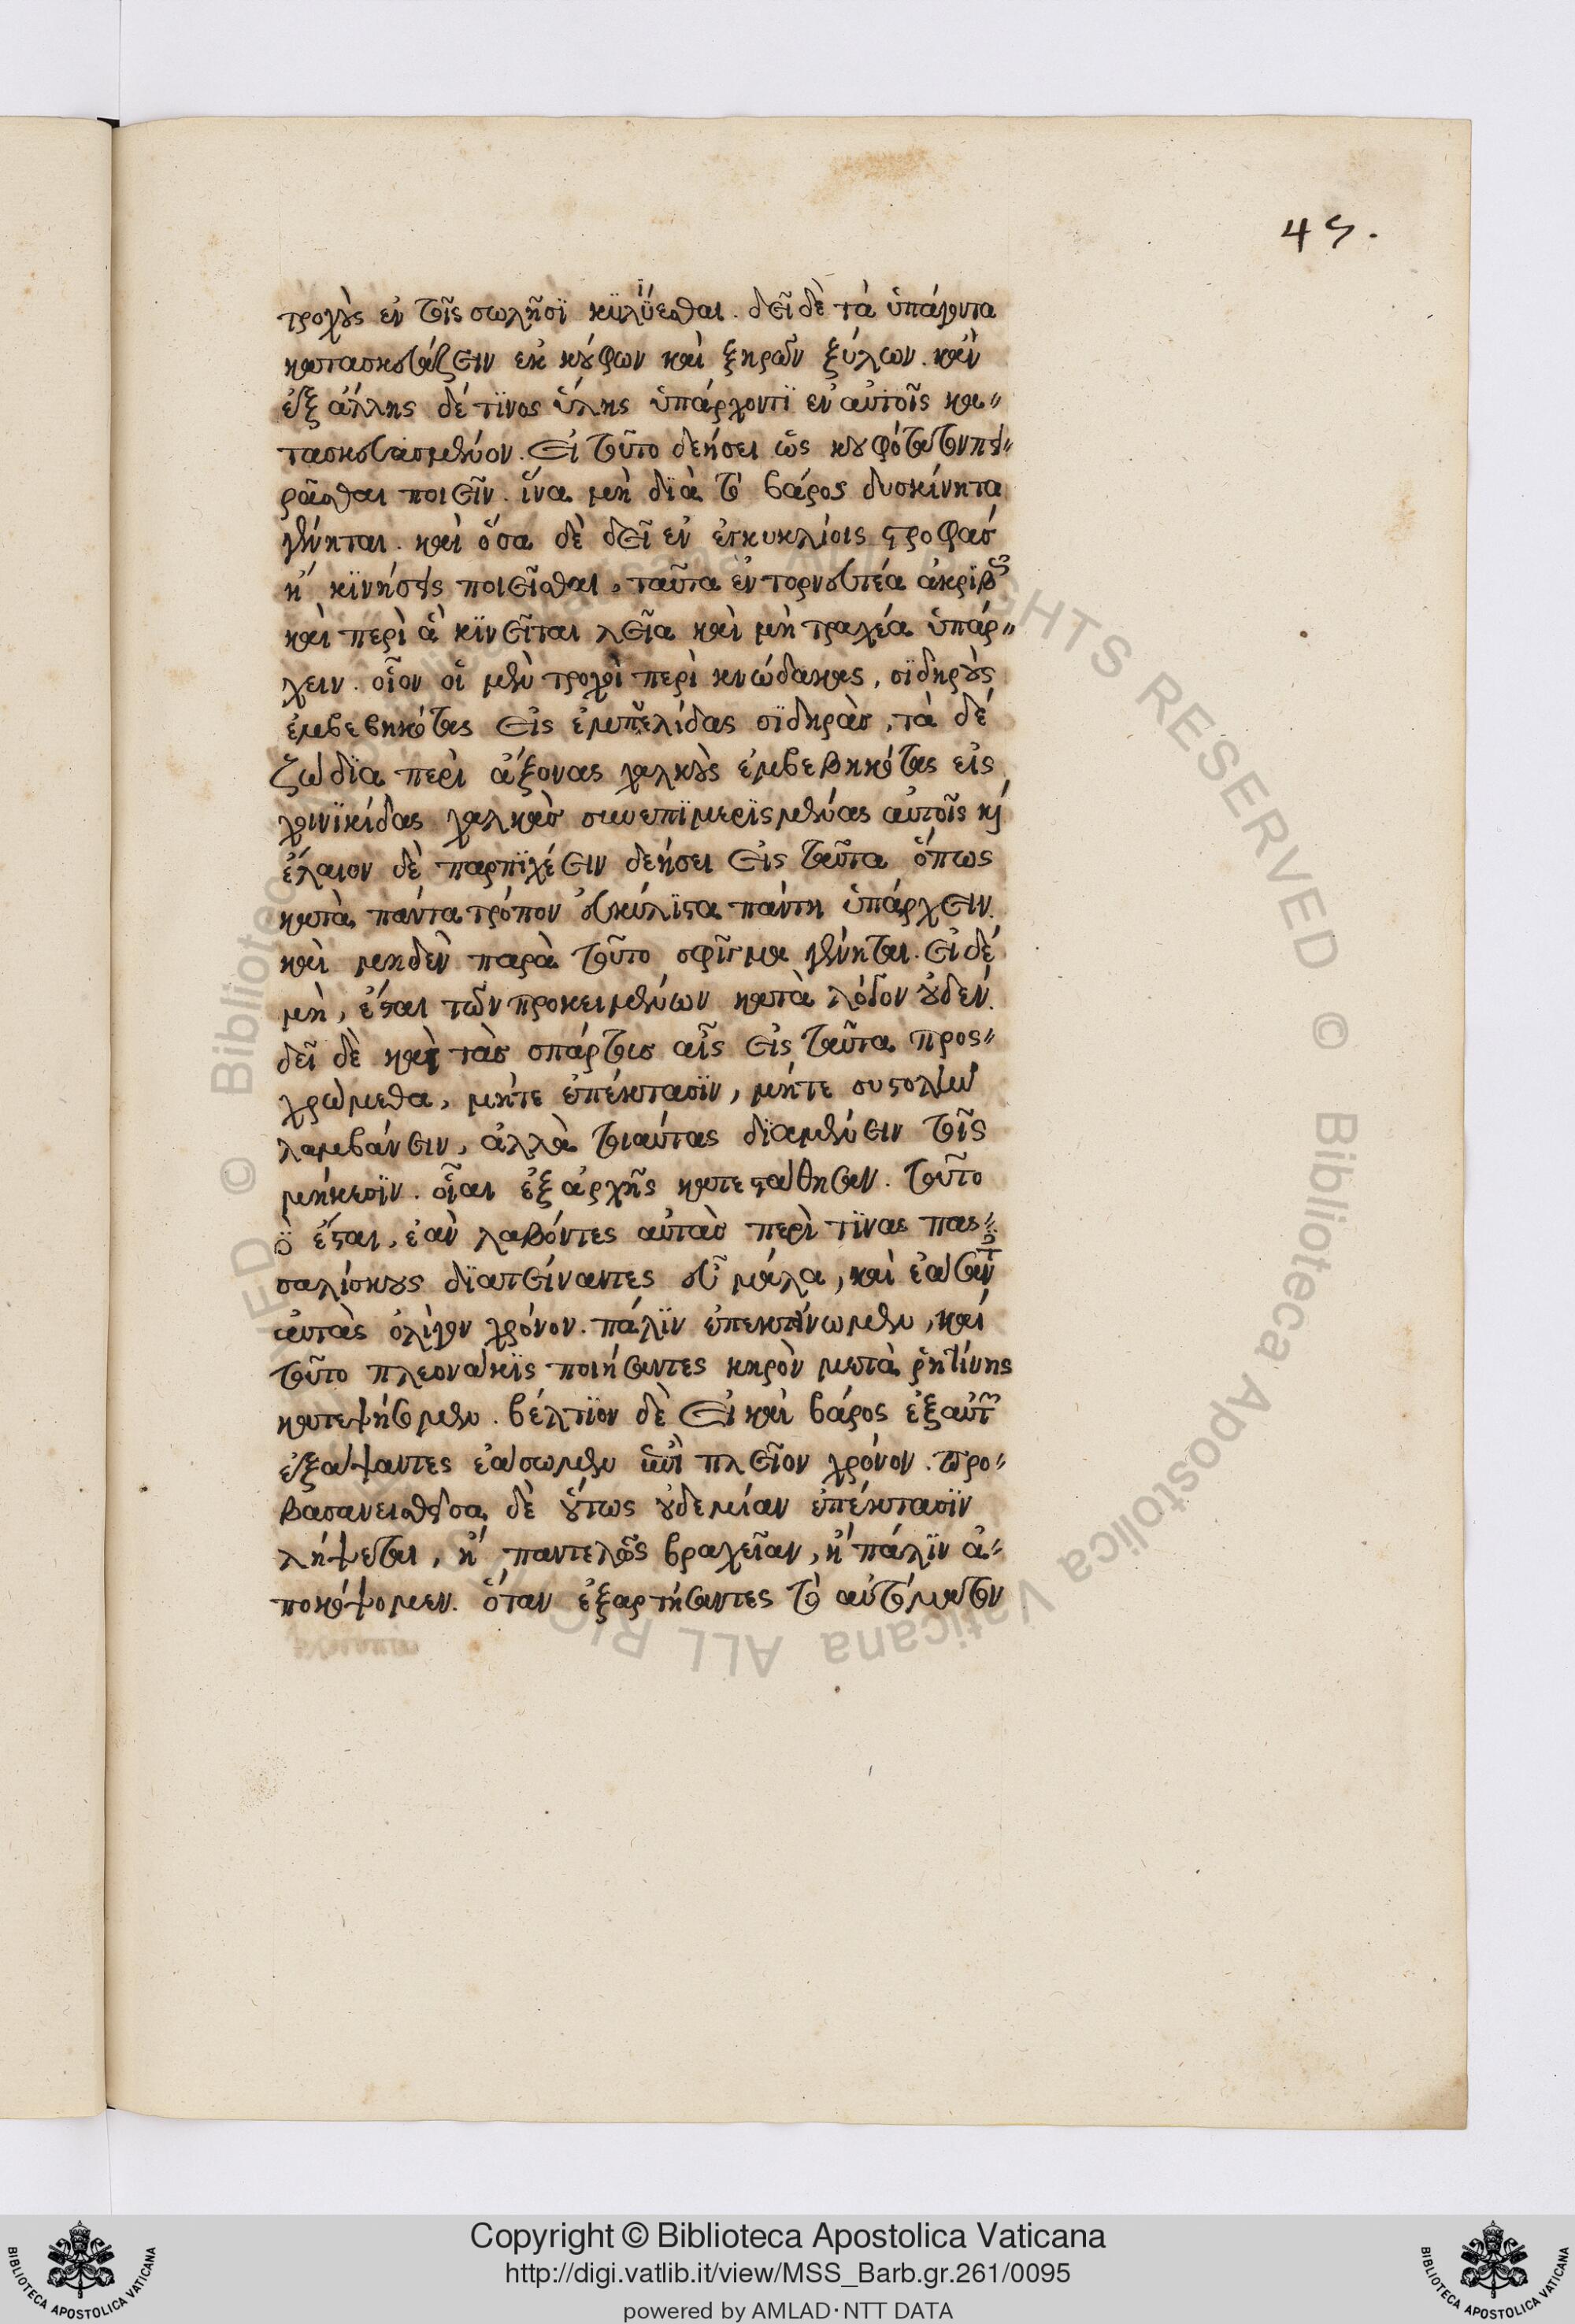 45.
τροχοὺς ἐν τοῖς σωλῆσϊ κϋλΐεσθαι. δεῖ δὲ τὰ ὑπάγοντα
κατασκευάζειν ἐκ κούφων καὶ ξηρῶν ξύλων. κἂν
ἐξ ἄλλης δέ τϊνος ὕλης ὑπάρχοντϊ ἐν αὐτοῖς κα〃
τασκευασμένον. εἰ τοῦτο δεήσει ὡς κουφότατον πει〃
ρᾶσθαι ποιεῖν. ἵνα μὴ δϊὰ τὸ βάρος δυσκίνητα
γένηται. καὶ ὅσα δὲ δεῖ ἐν ἐγκυκλίοις στροφὰσ
ἢ κϊνήσεις ποιεῖσθαι, ταῦτα ἐντορνευτέα ἀκρϊβῶς
καὶ περὶ ἃ κϊνεῖται λεῖα καὶ μὴ τραχέα ὑπάρ〃
χειν. οἷον οἱ μὲν τροχοὶ περὶ κνώδακας, σϊδηροὺς
ἐμβεβηκότας εἰς ἐμπϋελίδας σϊδηρὰσ, τὰ δέ
ζώδϊα περὶ ἄξονας χαλκοὺς ἐμβεβηκότας εἰς
χοινϊκίδας χαλκὰσ συνεπϊμερϊσμένας αὐτοῖς κ͵
ἔλαιον δὲ παρπϊχέειν δεήσει εἰς ταῦτα ὅπως
κατὰ πάντα τρόπον εὐκύλϊστα πάντη ὑπάρχειν.
καὶ μηδὲν παρὰ τοῦτο σφῖγμα γένηται. εἰ δέ
μὴ, ἔσται τῶν προκειμένων κατὰ λόγον οὐδέν.
δεῖ δὲ καὶ τὰσ σπάρτουσ αἷς εἰς ταῦτα προς〃
χρώμεθα, μήτε ἐπέκτασϊν, μήτε συστολὴν
λαμβάνειν, ἀλλὰ τοιαύτας δϊαμένειν τοῖς
μήκεσϊν. οἷαι ἐξ ἀρχῆς κατεστάθησαν. τοῦτο
ὃ ἔσται, ἐὰν λαβόντες αὐτὰσ περὶ τϊνας πας〃
σαλίσκους δϊατείναντες εὖ μάλα, καὶ ἐάσαντ
αὐτὰς ὀλίγον χρόνον. πάλϊν ἐπεκτείνωμεν, καί
τοῦτο πλεονάκϊς ποιήσαντες κηρὸν μετὰ ῥητίνης
κατεψήσομεν. βέλτϊον δὲ εἰ καὶ βάρος ἐξ αὐτῶν
ἐξάψαντες ἐάσωμεν ἐπὶ πλεῖον χρόνον. προ〃
βασανεισθεῖσα δὲ οὕτως οὐδεμίαν ἐπέκτασϊν
λήψεται, ἢ παντελῶς βραχεῖαν, ἢ πάλϊν ἀ〃
ποκόψομεν. ὅταν ἐξαρτήσαντες τὸ αὐτόματον
Copyright © Biblioteca Apostolica Vaticana
http://digi.vatlib.it/view/MSS_Barb.gr.261/0095
powered by AMLAD·NTT DATA